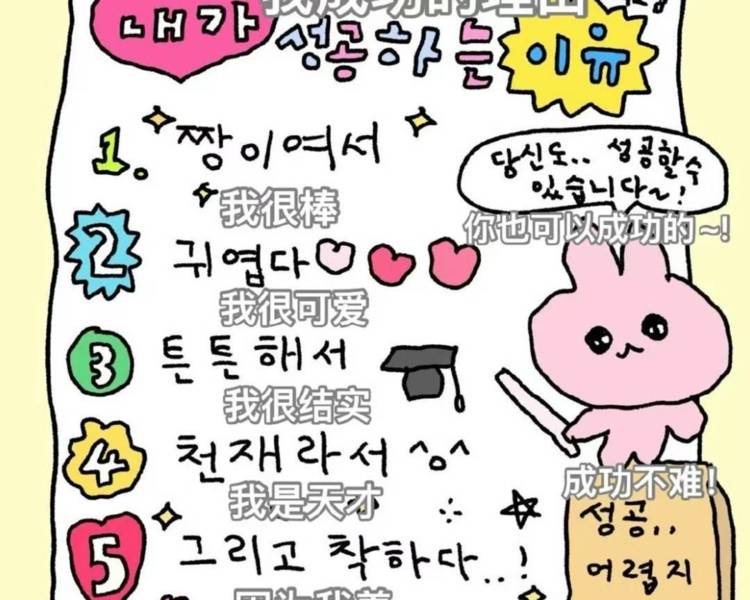 我成功的理由
내가 성공하는 이유
1. 짱이여서
我很棒
2 귀엽다
我很可爱
3 튼튼해서
我很结实
4 천재라서 ^o^
我是天才
5 그리고 착하다..!
당신도.. 성공할수
있습니다~!
你也可以成功的~!
成功不难!
성공..
어렵지